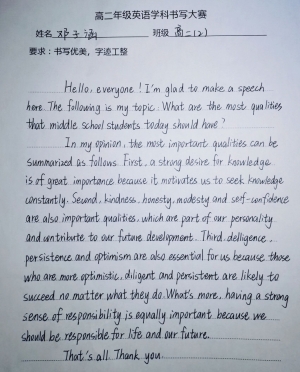 高二年级英语学科书写大赛
姓名 邓子涵 班级 高二(2)
要求：书写优美，字迹工整
Hello, everyone! I'm glad to make a speech
here. The following is my topic: What are the most qualities
that middle school students today should have?
In my opinion, the most important qualities can be
summarized as follows. First, a strong desire for knowledge
is of great importance because it motivates us to seek knowledge
constantly. Second, kindness, honesty, modesty and self-confidence
are also important qualities, which are part of our personality
and contribute to our future development. Third, delligence,
persistence and optimism are also essential for us because those
who are more optimistic, diligent and persistent are likely to
succeed no matter what they do. What's more, having a strong
sense of responsibility is equally important because we
should be responsible for life and our future.
That's all. Thank you.